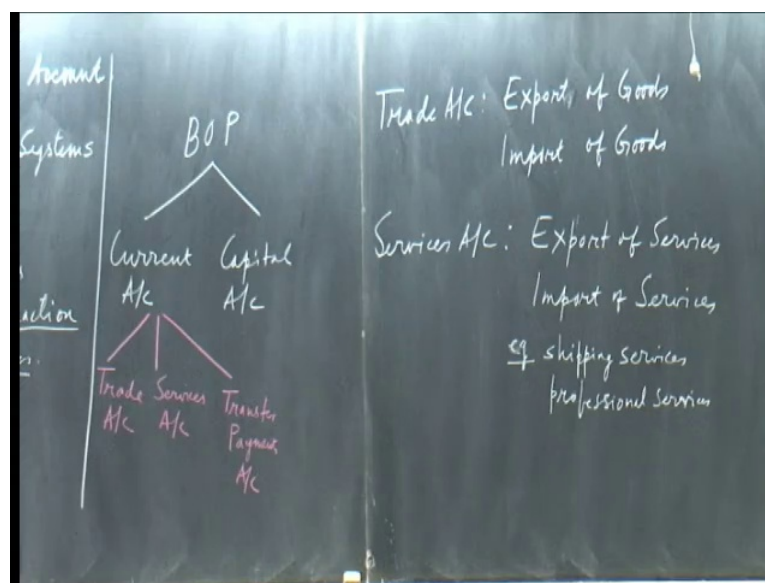 Account
Systems
action
BOP
Current Capital
A/c A/c
Trade Services Transfer
A/c A/c Payments
A/c
Trade A/c : Export of Goods
Import of Goods
Services A/c : Export of Services
Import of Services
eg shipping services
professional services